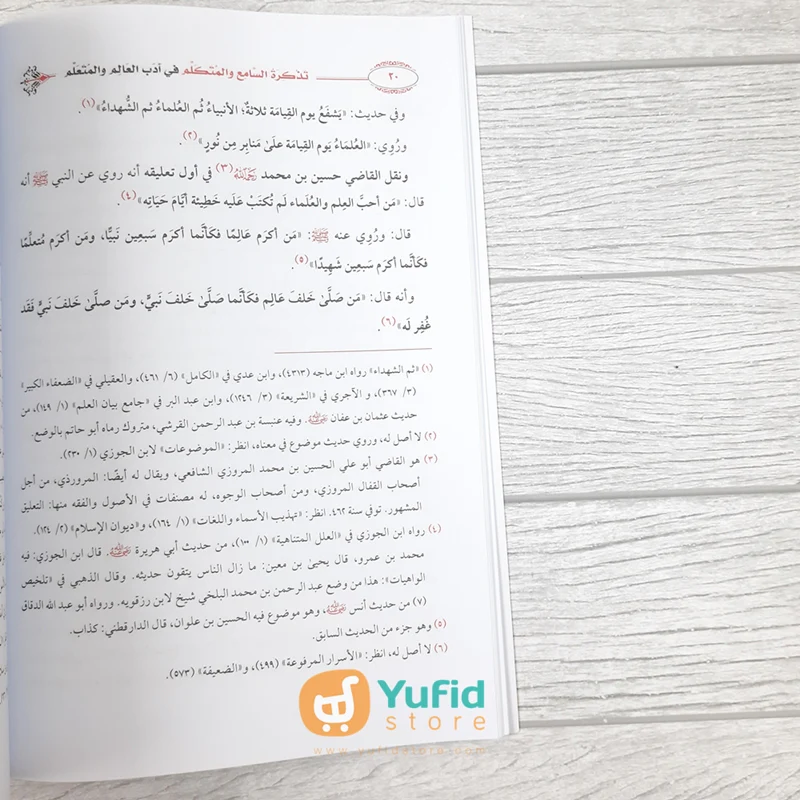 ٢٠ تذكرة السامع والمتكلم في أدب العالِم والمتعلم
وفي حديث: «يَشفَعُ يوم القِيامَة ثلاثةٌ؛ الأنبياءُ ثُم العُلماءُ ثم الشُّهداءُ»(١).
ورُوِي: «العُلمَاءُ يَوم القِيامَة علَىٰ مَنابِر مِن نُورٍ»(٢).
ونقل القاضي حسين بن محمد رَحِمَهُ ٱللَّهُ(٣) في أول تعليقه أنه روي عن النبي ﷺ أنه
قال: «مَن أحبَّ العِلم والعُلَماء لَم تُكتَبْ عَلَيه خَطِيئة أيَّامَ حَيَاتِه»(٤).
قال: ورُوِي عنه ﷺ: «مَن أكرَم عَالِمًا فكَأنَّما أكرَم سَبعِين نَبيًّا، ومَن أكرَم مُتعلِّمًا
فكَأنَّما أكرَم سَبعِين شَهِيدًا»(٥).
وأنه قال: «مَن صَلَّىٰ خَلفَ عَالِم فكَأنَّما صَلَّىٰ خَلفَ نَبيٍّ، ومَن صلَّىٰ خَلفَ نَبيٍّ فَقَد
غُفِر لَه»(٦).
(١) «ثم الشهداء» رواه ابن ماجه (٤٣١٣)، وابن عدي في «الكامل» (٦/ ٤٦١)، والعقيلي في «الضعفاء الكبير»
(٣/ ٣٦٧)، و الآجري في «الشريعة» (٣/ ١٢٤٦)، وابن عبد البر في «جامع بيان العلم» (١/ ١٤٩)، من
حديث عثمان بن عفان رَضِيَ ٱللَّهُ عَنْهُ. وفيه عنبسة بن عبد الرحمن القرشي، متروك رماه أبو حاتم بالوضع.
(٢) لا أصل له، وروي حديث موضوع في معناه، انظر: «الموضوعات» لابن الجوزي (١/ ٢٣٠).
(٣) هو القاضي أبو علي الحسين بن محمد المروزي الشافعي، ويقال له أيضًا: المرورذي، من أجل
أصحاب القفال المروزي، ومن أصحاب الوجوه، له مصنفات في الأصول والفقه منها: التعليق
المشهور. توفي سنة ٤٦٢. انظر: «تهذيب الأسماء واللغات» (١/ ١٦٤)، و«ديوان الإسلام» (٢/ ١٢٤).
(٤) رواه ابن الجوزي في «العلل المتناهية» (١/ ١٠٠)، من حديث أبي هريرة رَضِيَ ٱللَّهُ عَنْهُ. قال ابن الجوزي: فيه
محمد بن عمرو، قال يحيىٰ بن معين: ما زال الناس يتقون حديثه. وقال الذهبي في «تلخيص
الواهيات»: هذا من وضع عبد الرحمن بن محمد البلخي شيخ لابن رزقويه. ورواه أبو عبد الله الدقاق
(٧) من حديث أنس رَضِيَ ٱللَّهُ عَنْهُ، وهو موضوع فيه الحسين بن علوان، قال الدارقطني: كذاب.
(٥) وهو جزء من الحديث السابق.
(٦) لا أصل له، انظر: «الأسرار المرفوعة» (٤٩٩)، و«الضعيفة» (٥٧٣).
Yufid
store
www.yufidstore.com